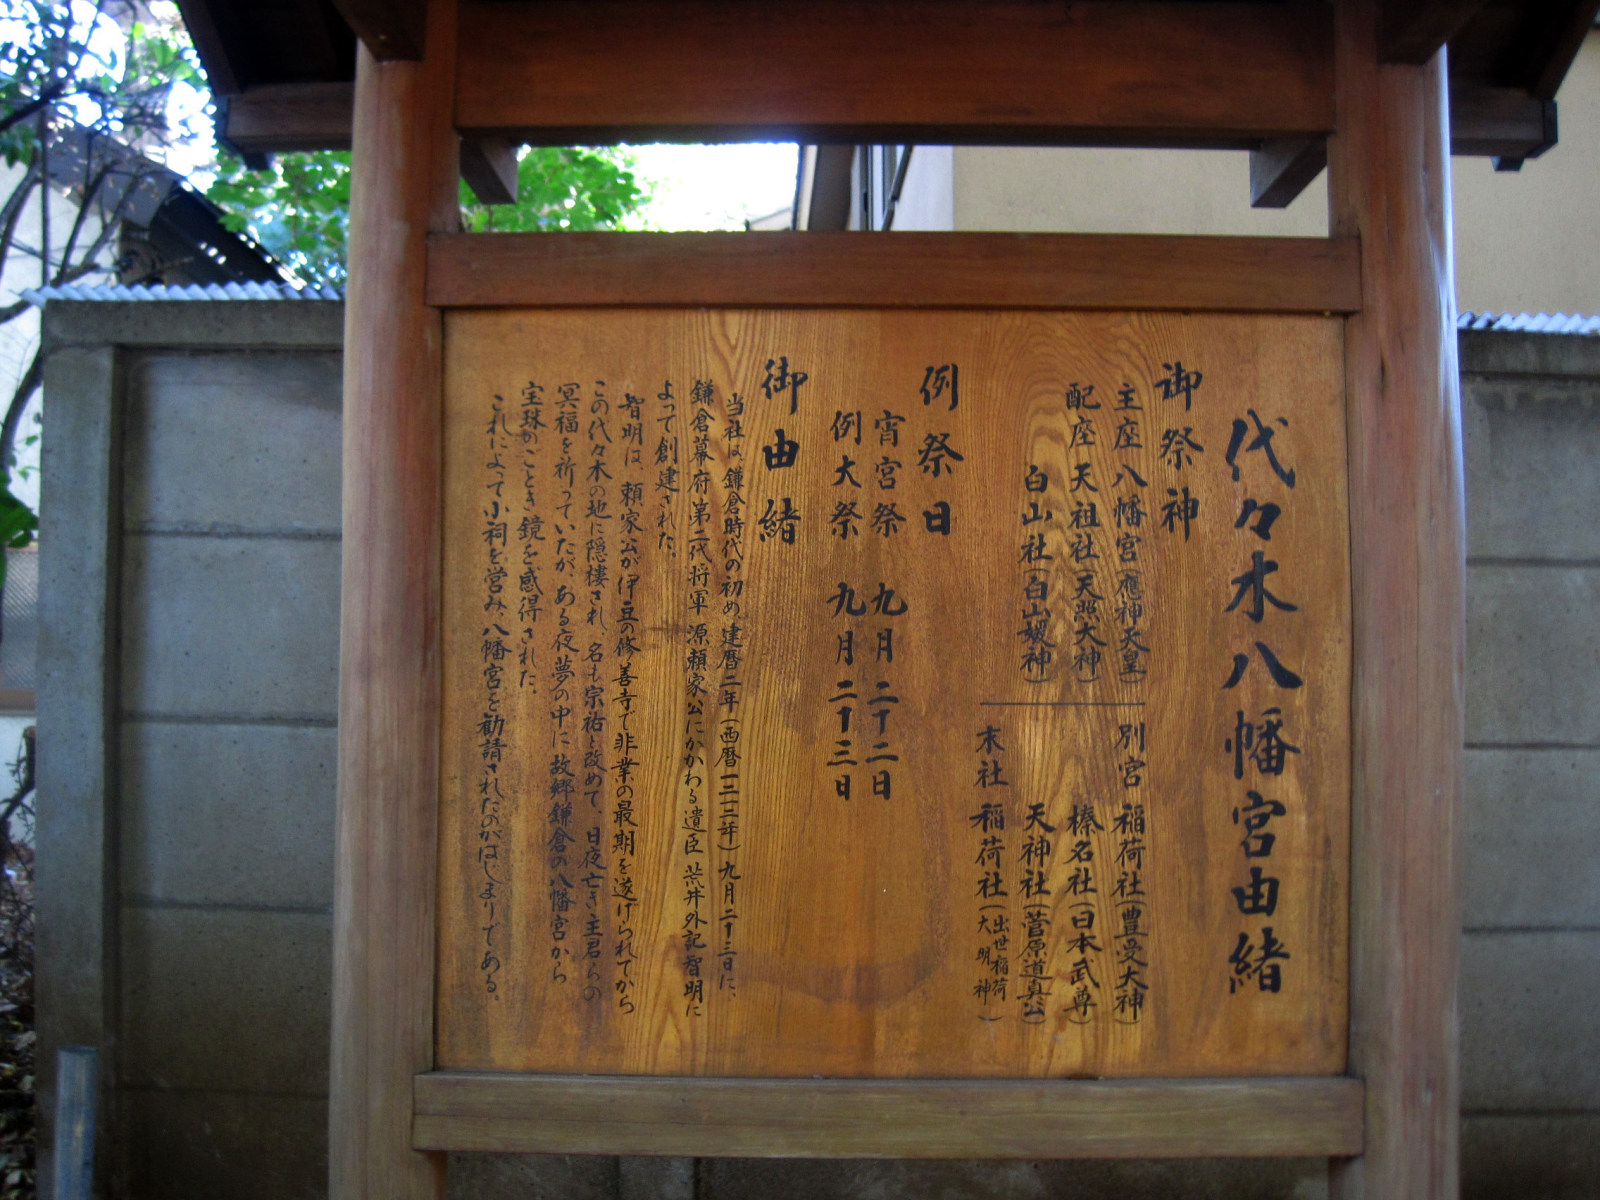 代々木八幡宮由緒
御祭神
主座 八幡宮(應神天皇)
配座 天祖社(天照大神)
白山社(白山媛神)
別宮 稲荷社(豊受大神)
榛名社(日本武尊)
天神社(菅原道真公)
末社 稲荷社(出世稲荷大明神)
例祭日
宵宮祭 九月二十二日
例大祭 九月二十三日
御由緒
当社は鎌倉時代の初め、建暦二年(西暦一二一二年)九月二十三日に、
鎌倉幕府第二代将軍 源頼家公にかかわる遺臣 荒井外記智明に
よって創建された。
智明は、頼家公が伊豆の修善寺で非業の最期を遂げられてから
この代々木の地に隠棲され、名も宗祐と改めて、日夜亡き主君らの
冥福を祈っていたが、ある夜夢の中に故郷鎌倉の八幡宮から
宝珠のごとき鏡を感得された。
これによって小祠を営み、八幡宮を勧請されたのがはじまりである。